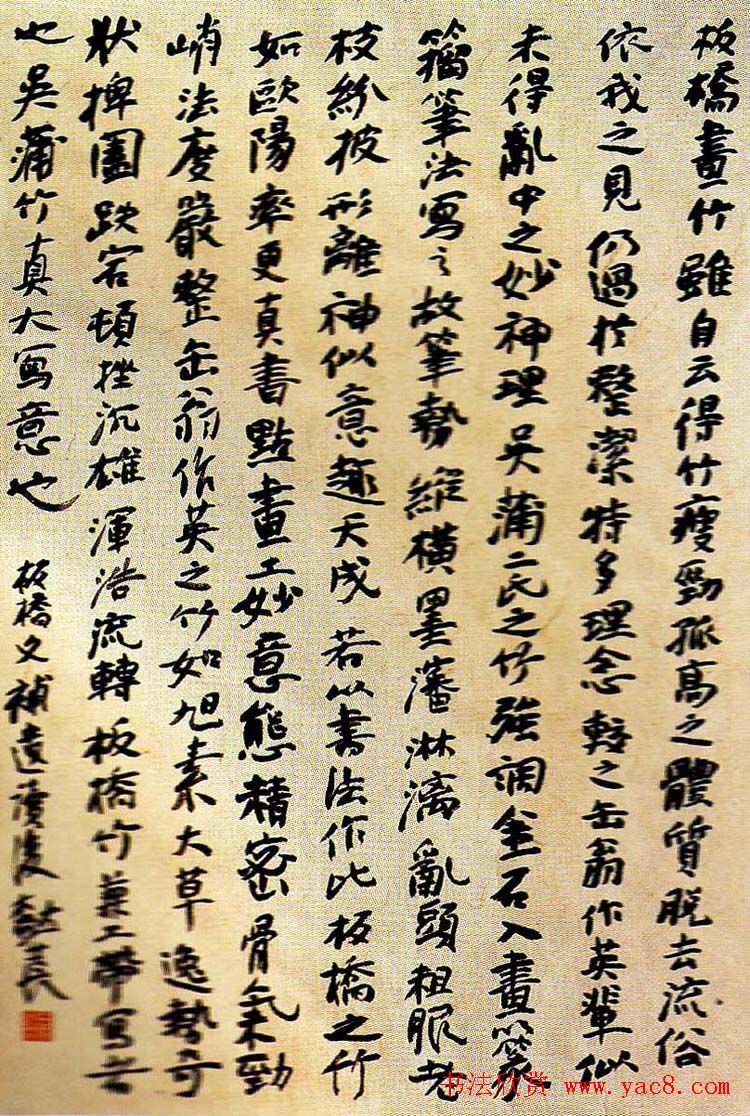 板橋畫竹雖自云得竹瘦勁孤高之體質脱去流俗
依我之見仍過於整潔特多理念較之缶翁作英輩似
未得亂中之妙神理吴蒲二氏之竹強調金石入畫篆
籀筆法寫之故筆勢縱横墨瀋淋漓亂頭粗服老
枝紛披形離神似意趣天成若以書法作比板橋之竹
如歐陽率更真書點畫工妙意態精密骨氣勁
峭法度嚴整缶翁作英之竹如旭素大草逸勢奇
狀捭闔跌宕頓挫沉雄渾浩流轉板橋竹兼工帶寫者
也吴蒲竹真大寫意也
板橋文補遺讀後
书法欣赏 www.yac8.com